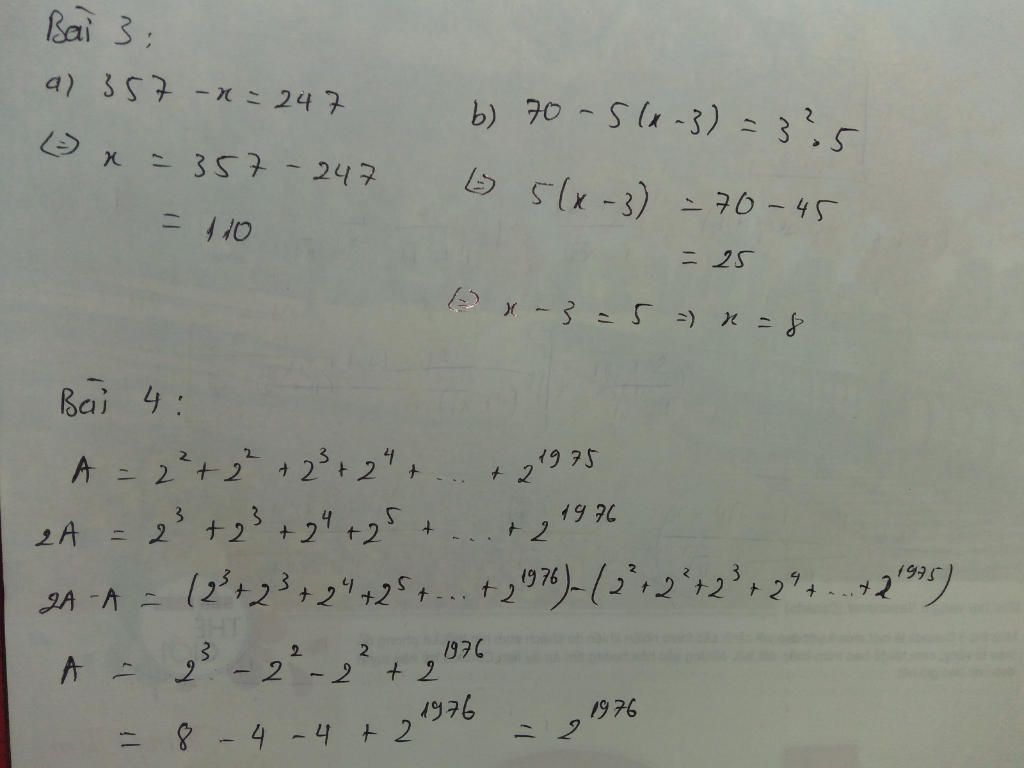 Bài 3:
a) 357 - x = 247
(=) x = 357 - 247
= 110
b) 70 - 5(x - 3) = 3².5
(=) 5(x - 3) = 70 - 45
= 25
(=) x - 3 = 5 =) x = 8
Bài 4:
A = 2² + 2² + 2³ + 2⁴ + ... + 2¹⁹⁷⁵
2A = 2³ + 2³ + 2⁴ + 2⁵ + ... + 2¹⁹⁷⁶
2A - A = (2³ + 2³ + 2⁴ + 2⁵ + ... + 2¹⁹⁷⁶) - (2² + 2² + 2³ + 2⁴ + ... + 2¹⁹⁷⁵)
A = 2³ - 2² - 2² + 2¹⁹⁷⁶
= 8 - 4 - 4 + 2¹⁹⁷⁶ = 2¹⁹⁷⁶